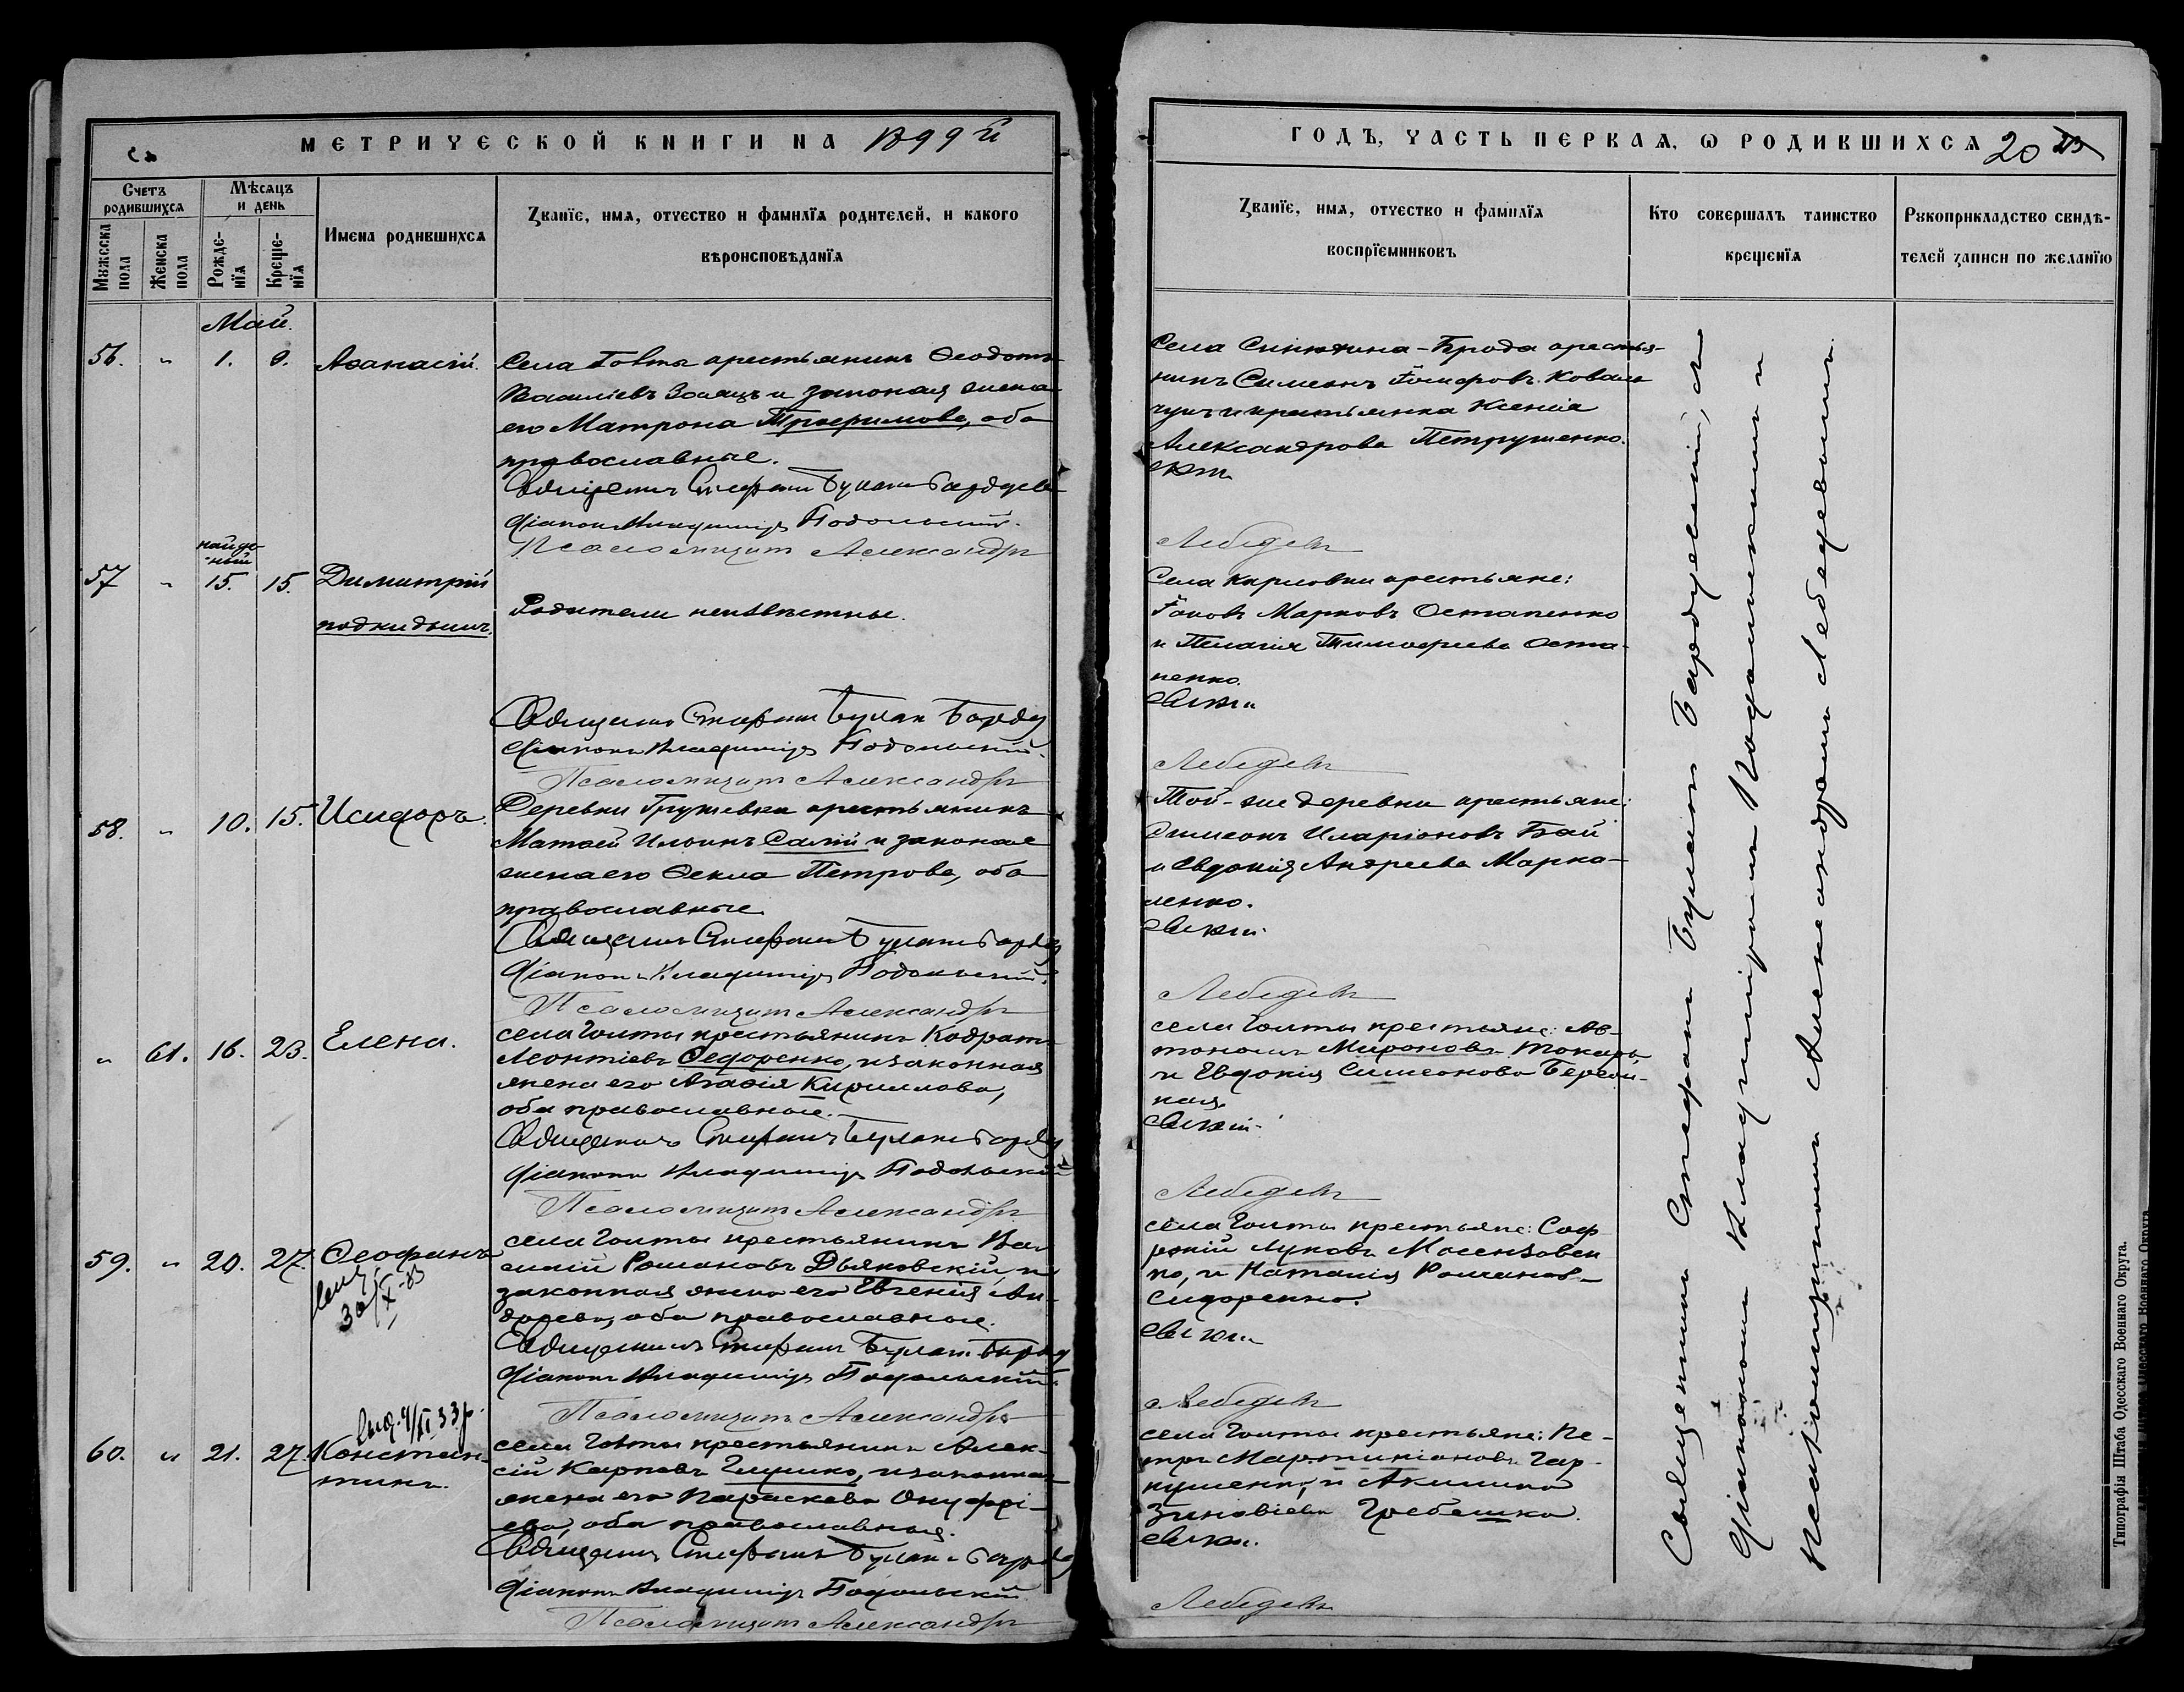 МЕТРИЧЕСКОЙ КНИГИ НА 1899й
Счетъ родившихся
Мѣсяцъ и день
Имена родившихся
Званїе, имя, отчество и фамилїя родителей, и какого
вѣроисповѣданїя
Мужеска пола
Женска пола
Рожденїя
Крещенїя
Май.
56. " 1. 9. Аѳанасій. Села Голты крестьянинъ Ѳеодотъ
Василіевъ Заяцъ и законая жена
его Матрона Трофимова, оба
православные.
Священникъ Стефанъ Булатъ Бардуев
Діаконъ Владиміръ Подольский.
Псаломщикъ Александръ
найде-
-ный
57 " 15. 15. Димитрій
подкидышъ.
Родители неизвѣстные.
Священникъ Стефанъ Булат Барду
Діаконъ Владиміръ Подольский.
Псаломщикъ Александръ
58. " 10. 15. Исидоръ. Деревни Грушевки крестьянинъ
Матѳей Ильинъ Салій и законая
жена его Ѳекла Петрова, оба
православные.
Священникъ Стефанъ Булатъ Барду
Діаконъ Владиміръ Подольский.
Псаломщикъ Александръ
" 61. 16. 23. Елена. села Голты крестьянинъ Кодратъ
Леонтіевъ Ѳедоренко, и законная
жена его Агаѳія Кириллова,
оба православные.
Священникъ Стефанъ Булатъ Барду
Діаконъ Владиміръ Подольский
Псаломщикъ Александръ
59. " 20. 27. Ѳеофанъ села Голты крестьянинъ Ва-
силій Романовъ Дьяковскій, и
законная жена его Евгенія Ан-
дреева, оба православные.
30/X-83
Священникъ Стефанъ Булат Барду
Діаконъ Владиміръ Подольскій.
Псаломщикъ Александръ
60. " 21. 27. Констан-
тинъ.
села Голты крестьянинъ Алек-
сій Карповъ Глушко, и законная
жена его Параскева Онуфрі-
ева, оба православные.
Священникъ Стефанъ Булат Барду
Діаконъ Владиміръ Подольскій
Псаломщикъ Александръ
ГОДЪ, ЧАСТЬ ПЕРВАЯ, Ѡ РОДИВШИХСЯ 20
Званїе, имя, отчество и фамилїя
воспрїемниковъ
Кто совершалъ таинство
крещенїя
Рукоприкладство свидѣ-
телей записи по желанїю
Села Синюхина-Брода крестья-
нинъ Симеонъ Коваль-
чукъ и крестьянка Ксенія
Александрова Петрушенко.
Лебедевъ
Села Карловки крестьяне:
Іаковъ Марковъ Остапенко
и Пелагія Тимофеева Оста-
пенко.
Лебедевъ
Той-же деревни крестьяне:
Симеонъ Иларіоновъ Бай
и Евдокія Андреева Марка-
ленко.
Лебедевъ
села Голты крестьяне: Ав-
тономъ Мироновъ Токарь,
и Евдокія Симеонова
Лебедевъ
села Голты крестьяне: Соф-
роній Луковъ Мосензовен
ко, и Наталія Романов-
Сидоренко.
Лебедевъ
села Голты крестьяне: Пе-
тръ Мартиніановъ Гар-
кушенко, и Акилина
Зиновіева Гребешко.
Лебедевъ
Священникъ Стефанъ Булатъ Бардуевскій, съ
Діакономъ Владиміромъ Подольскимъ и
псаломщикомъ Александромъ Лебедевымъ.
Типографія Штаба Одесскаго Военнаго Округа.